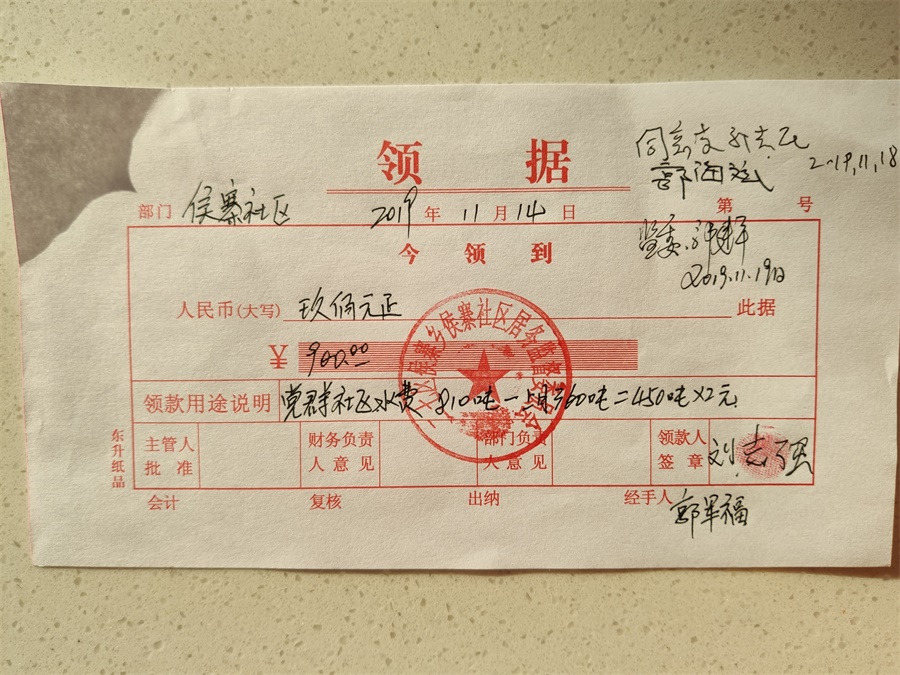 领据
同意支
2019.11.18
部门 侯寨社区 2019年11月14日 第 号
今领到
监委:
2019.11.19日
人民币(大写) 玖佰元正 此据
¥ 900.00
侯寨乡侯寨社区居务监督委员会
领款用途说明 党群社区水费 810吨-上月360吨=450吨×2元
主管人批准 财务负责人意见 部门负责人意见 领款人签章 刘志强
东升纸品
会计 复核 出纳 经手人 郭军福